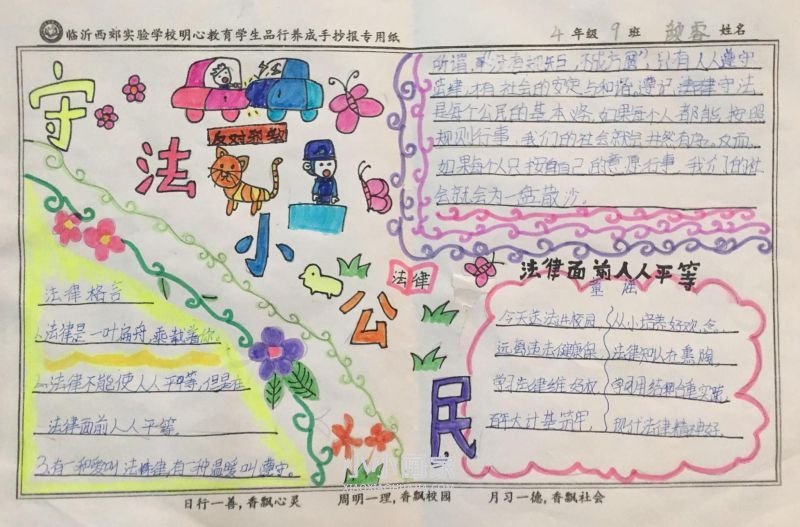 临沂西郊实验学校明心教育学生品行养成手抄报专用纸
4年级 9班 姓名
守法小公民
反对邪教
法律
所谓，"没有规矩，不成方圆"，只有人人遵守
法律，才有社会的安定与和谐，遵记法律守法
是每个公民的基本 如果每个人都能按照
规则行事，我们的社会就会井然有序。反而
如果每个人只按自己的意愿行事，我们的社
会就会为一盘散沙。
法律面前人人平等
今天送法进校园，从小培养好观念。
远离违法健康保，法律知识在熏陶，
学习法律维好权，学习用结合重实践，
百年大计基筑牢，现代法律精神好。
法律格言
1.法律是一叶扁舟，乘载着你。
二法律不能使人人平等，但是在
法律面前人人平等。
3.有一种爱叫法律，有一种温暖叫遵守。
日行一善，香飘心灵 周明一理，香飘校园 月习一德，香飘社会